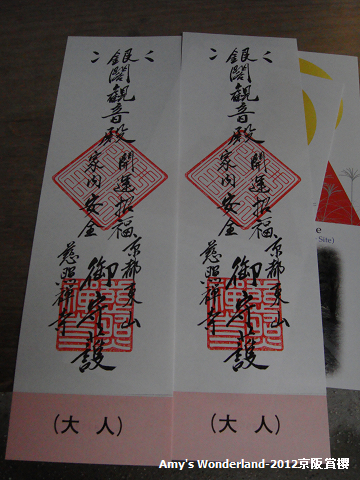 銀閣観音殿
開運招福
家内安全
京都東山
慈照禅寺
御守護
（大人）
銀閣観音殿
開運招福
家内安全
京都東山
慈照禅寺
御守護
（大人）
Site)
Amy's Wonderland-2012京阪賞櫻